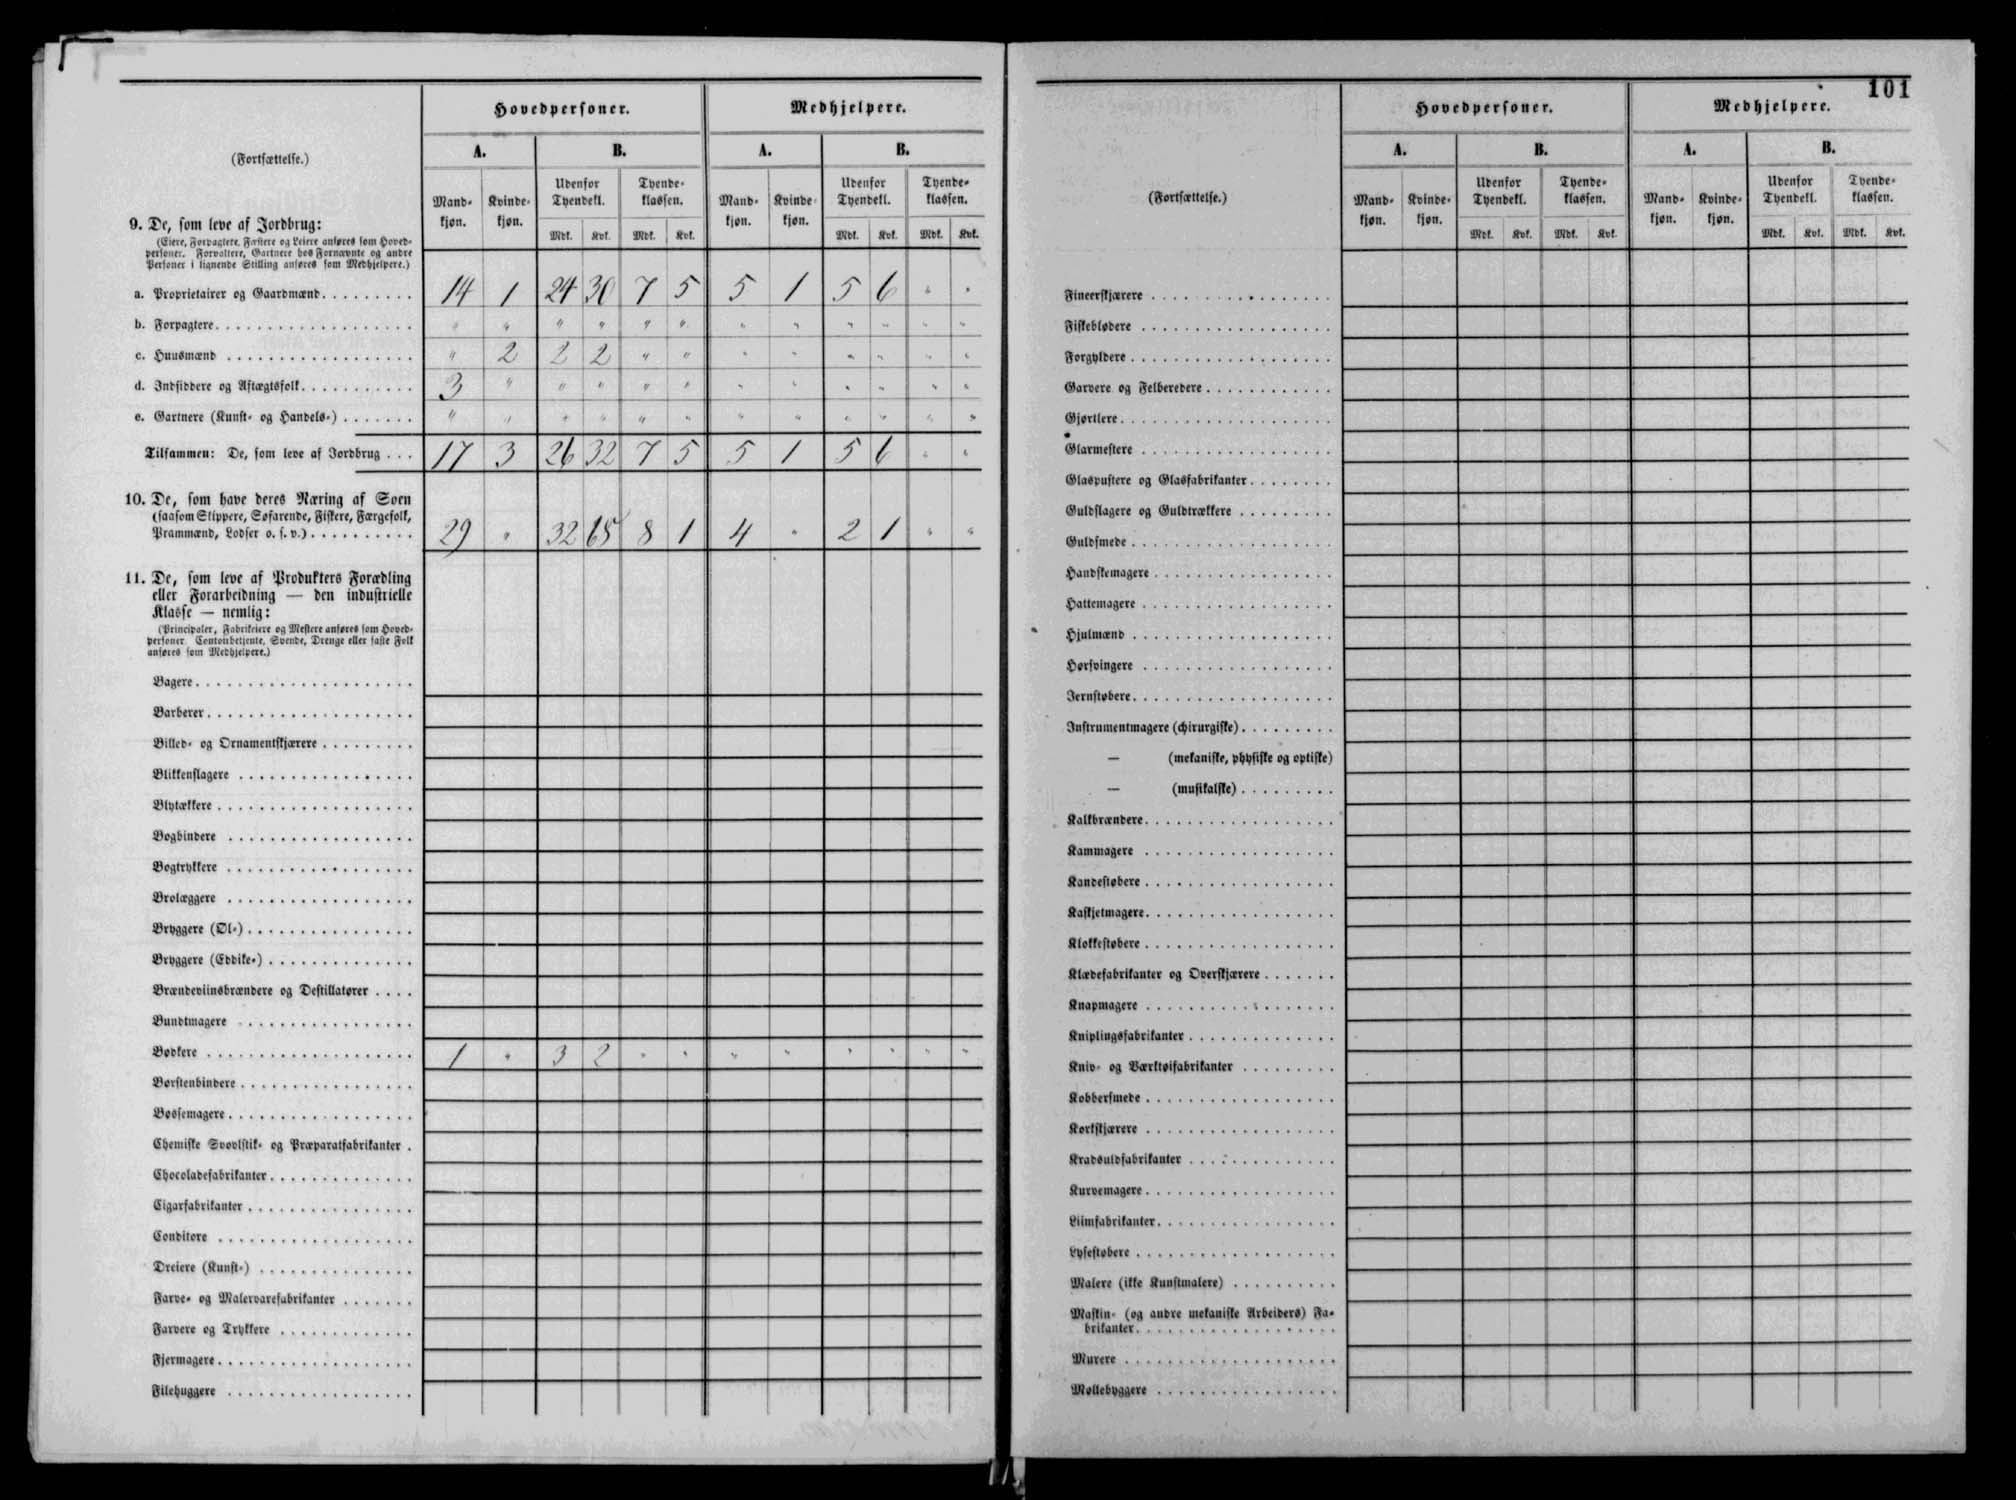 Hovedpersoner. Medhjelpere.
(Fortsættelse.) A. B. A. B.
Mand-kjøn. Kvinde-kjøn. Udenfor Tyendekl. Tyende-klassen. Mand-kjøn. Kvinde-kjøn. Udenfor Tyendekl. Tyende-klassen.
Mdk. Kvk. Mdk. Kvk. Mdk. Kvk. Mdk. Kvk.
9. De, som leve af Jordbrug:
(Eiere, Forpagtere, Fæstere og Leiere anføres som Hoved-
personer. Forvaltere, Gartnere hos Fornævnte og andre
Personer i lignende Stilling anføres som Medhjelpere.)
a. Proprietairer og Gaardmænd . . . 14 1 24 30 7 5 5 1 5 6 " "
b. Forpagtere . . . " " " " " " " " " " " "
c. Huusmænd . . . " 2 2 2 " " " " " " " "
d. Indsiddere og Aftægtsfolk . . . 3 " " " " " " " " " " "
e. Gartnere (Kunst- og Handels-) . . . " " " " " " " " " " " "
Tilsammen: De, som leve af Jordbrug . . . 17 3 26 32 7 5 5 1 5 6 " "
10. De, som have deres Næring af Søen
(saasom Skippere, Søfarende, Fiskere, Færgefolk,
Prammænd, Lodser o. s. v.) . . . 29 " 32 65 8 1 4 " 2 1 " "
11. De, som leve af Produkters Forædling
eller Forarbeidning — den industrielle
Klasse — nemlig:
(Principaler, Fabrikeiere og Mestere anføres som Hoved-
personer. Contoirbetjente, Svende, Drenge eller faste Folk
anføres som Medhjelpere.)
Bagere . . .
Barberer . . .
Billed- og Ornamentskjærere . . .
Blikkenslagere . . .
Blytækkere . . .
Bogbindere . . .
Bogtrykkere . . .
Brolæggere . . .
Bryggere (Øl-) . . .
Bryggere (Eddike-) . . .
Brændeviinsbrændere og Destillatører . . .
Bundtmagere . . .
Bødkere . . . 1 " 3 2 " " " " " " " "
Børstenbindere . . .
Bøssemagere . . .
Chemiske Svovlstik- og Præparatfabrikanter .
Chocoladefabrikanter . . .
Cigarfabrikanter . . .
Conditore . . .
Dreiere (Kunst-) . . .
Farve- og Malervarefabrikanter . . .
Farvere og Trykkere . . .
Fjermagere . . .
Filehuggere . . .
101
Hovedpersoner. Medhjelpere.
(Fortsættelse.) A. B. A. B.
Mand-kjøn. Kvinde-kjøn. Udenfor Tyendekl. Tyende-klassen. Mand-kjøn. Kvinde-kjøn. Udenfor Tyendekl. Tyende-klassen.
Mdk. Kvk. Mdk. Kvk. Mdk. Kvk. Mdk. Kvk.
Fineerskjærere . . .
Fiskebløдere . . .
Forgyldere . . .
Garvere og Felberedere . . .
Gjørtlere . . .
Glarmestere . . .
Glaspustere og Glasfabrikanter . . .
Guldslagere og Guldtrækkere . . .
Guldsmede . . .
Handskemagere . . .
Hattemagere . . .
Hjulmænd . . .
Hørsvingere . . .
Jernstøbere . . .
Instrumentmagere (chirurgiske) . . .
— (mekaniske, physiske og optiske)
— (musikalske) . . .
Kalkbrændere . . .
Kammagere . . .
Kandestøbere . . .
Kaskjetmagere . . .
Klokkestøbere . . .
Klædefabrikanter og Overskjærere . . .
Knapmagere . . .
Kniplingsfabrikanter . . .
Kniv- og Værktøifabrikanter . . .
Kobbersmede . . .
Korkskjærere . . .
Kradsuldfabrikanter . . .
Kurvemagere . . .
Liimfabrikanter . . .
Lysestøbere . . .
Malere (ikke Kunstmalere) . . .
Maskin- (og andre mekaniske Arbeiders) Fa-
brikanter . . .
Murere . . .
Møllebyggere . . .